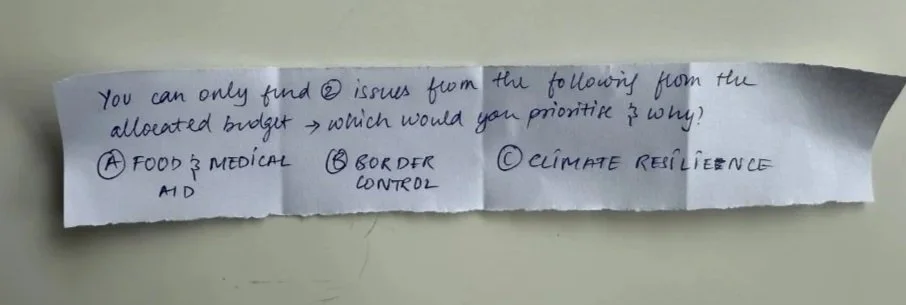 You can only fund ② issues from the following from the
allocated budget → which would you prioritise & why?
Ⓐ FOOD & MEDICAL Ⓑ BORDER Ⓒ CLIMATE RESILIENCE
AID CONTROL